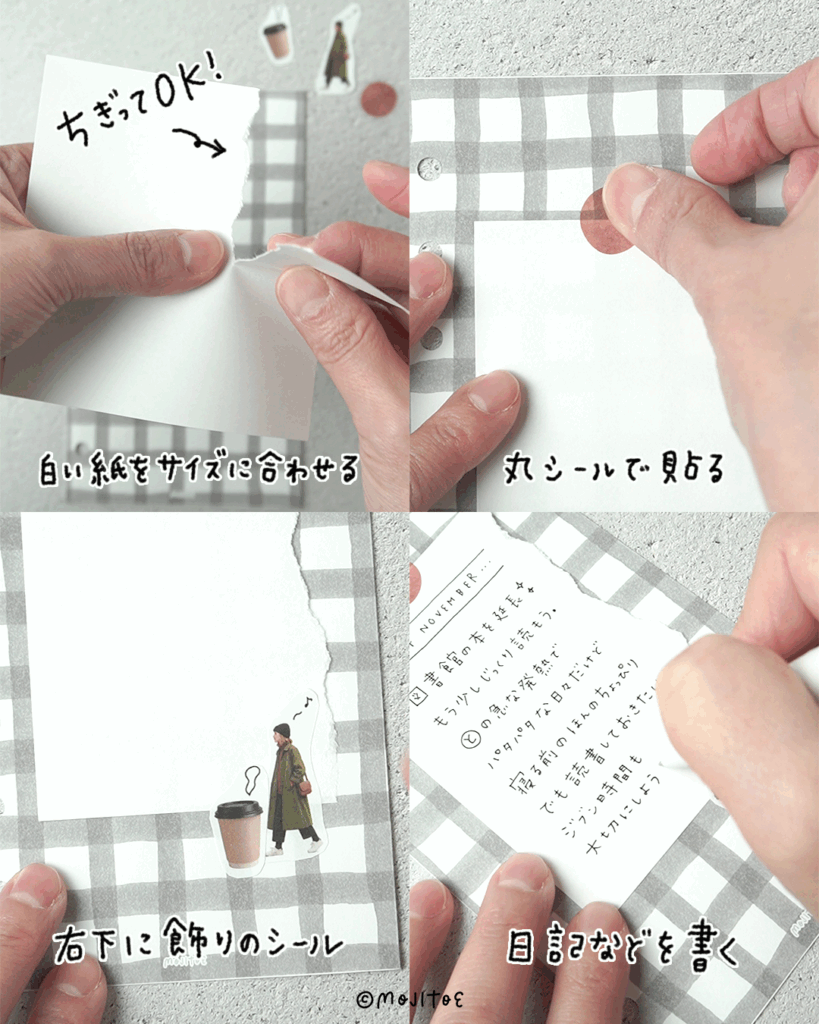 ちぎってOK!
白い紙をサイズに合わせる
丸シールで貼る
右下に飾りのシール
MOJITOE
NOVEMBER...
図書館の本を延長
もう少しじっくり読もう。
との急な発熱で
バタバタな日々だけど
寝る前のほんのちょっぴり
でも読書しておきたい
ジブン時間も
大切にしよう
日記などを書く
©MOJITOE